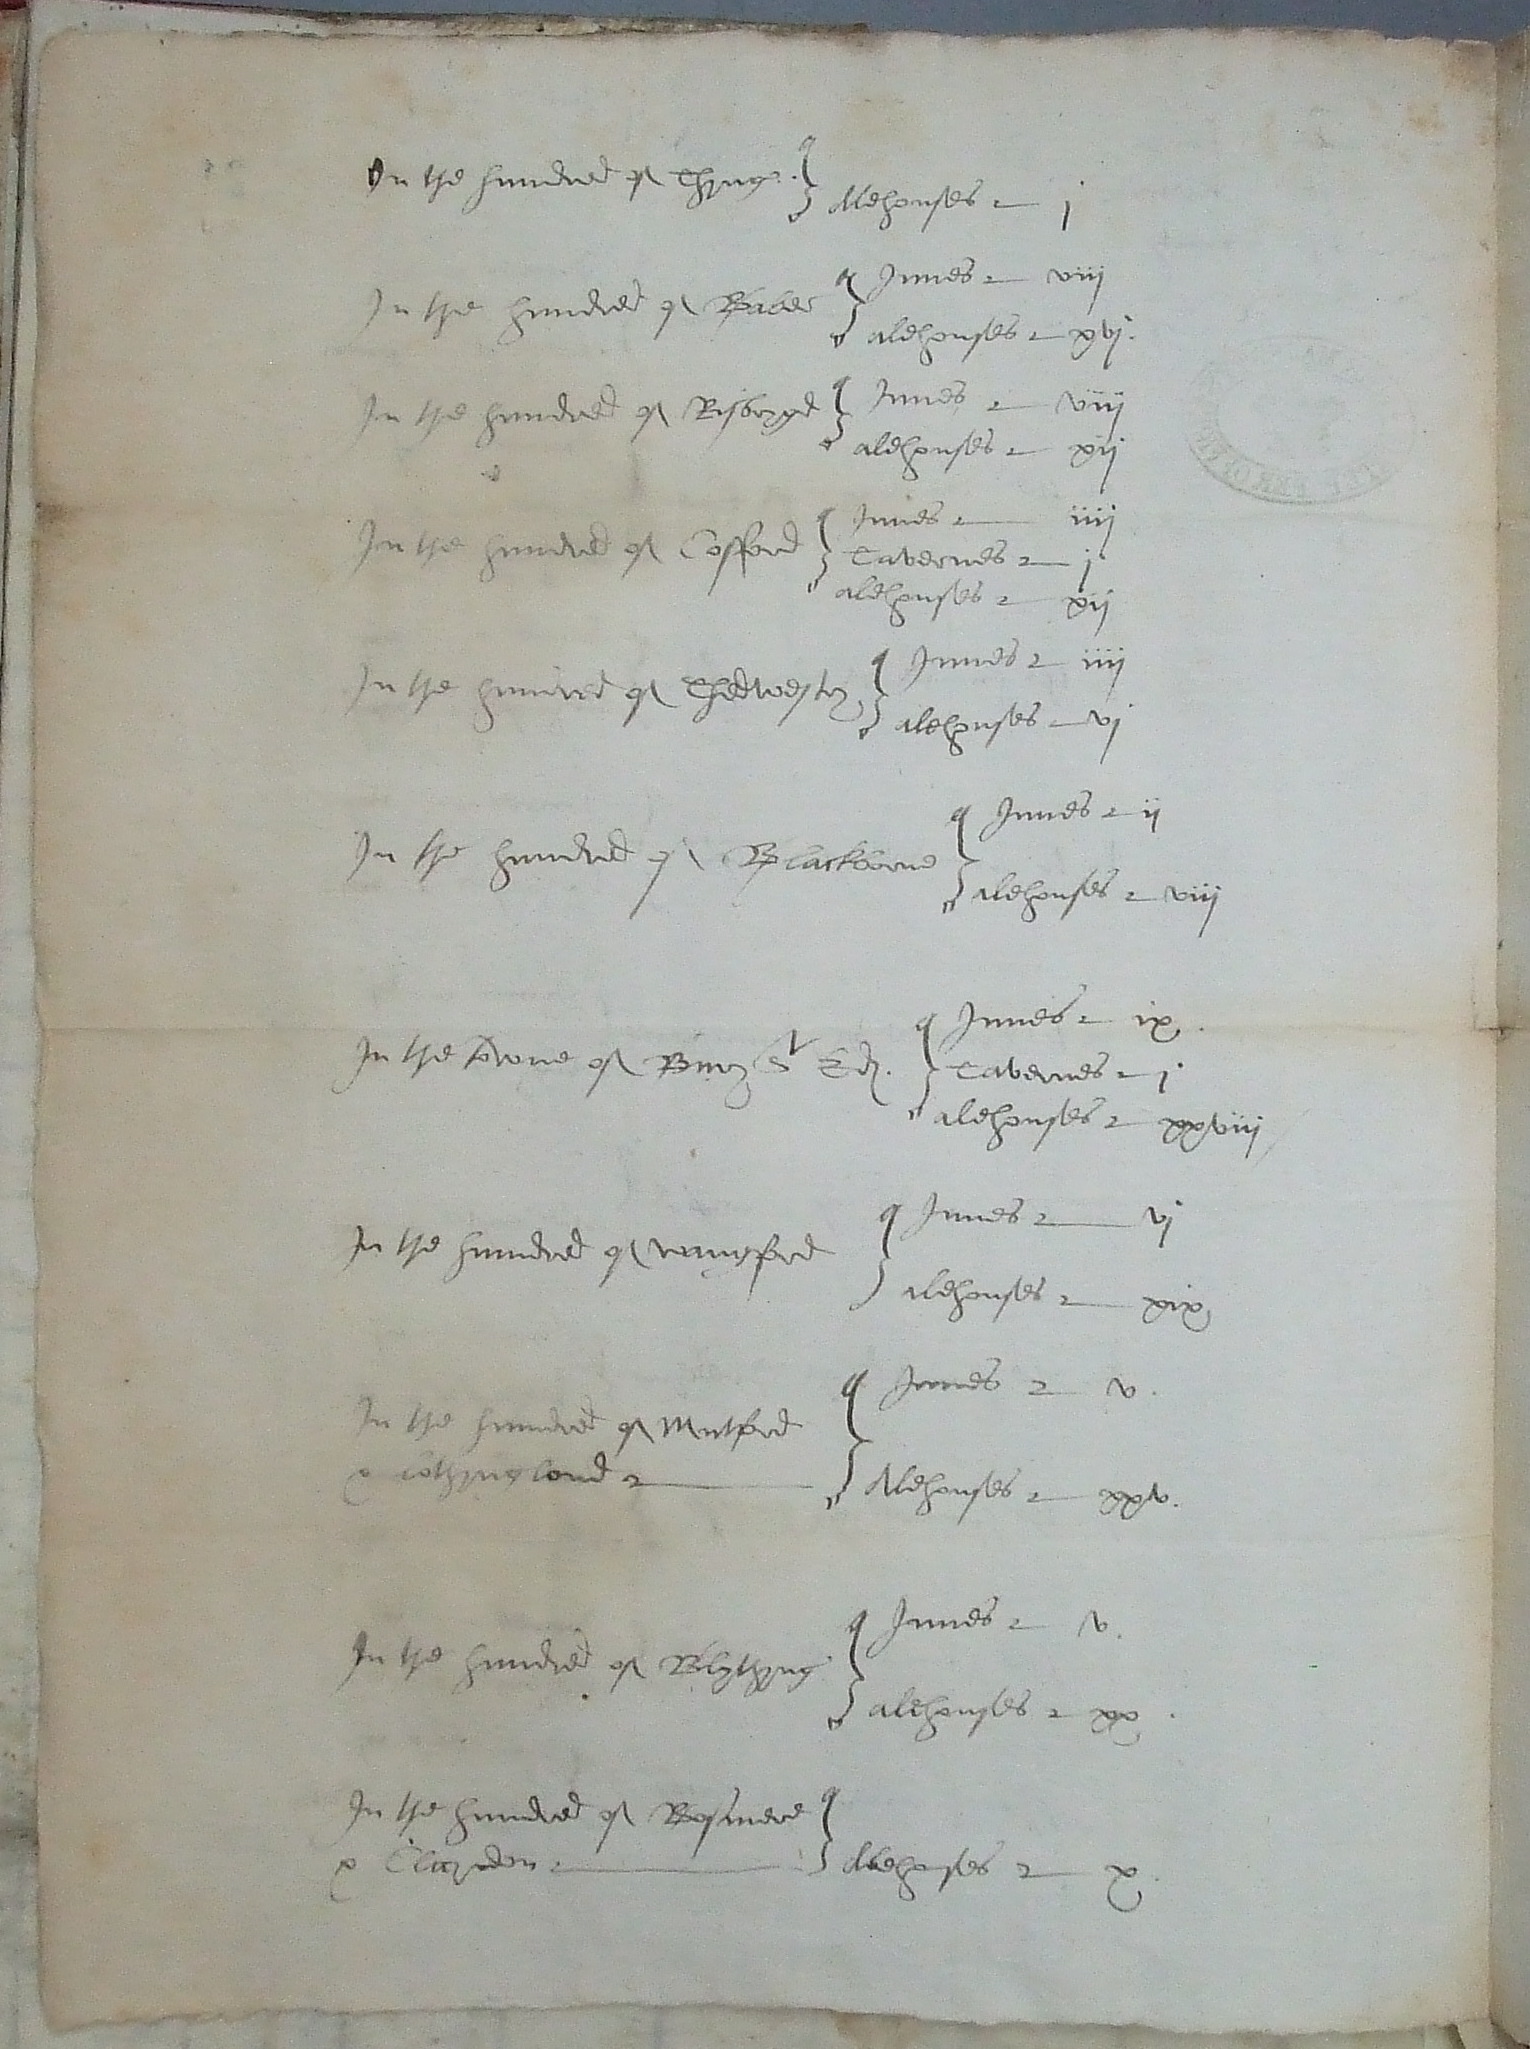 In the hundred of Thyng
Alehouses j
In the hundred of Baber
Innes viij
alehouses xvj
In the hundred of Risbryd
Innes viij
alehouses xij
In the hundred of Cosford
Innes iiij
Tavernes j
alehouses xij
In the hundred of Thedwestry
Innes iiij
alehouses vj
In the hundred of Blackborne
Innes ij
alehouses viij
In the towne of Bury St Ed.
Innes ix
Tavernes j
alehouses xxviij
In the hundred of wangford
Innes vj
alehouses xix
In the hundred of Mutford
& Lothynglond
Innes v.
Alehouses xxv.
In the hundred of Blythyng
Innes v.
alehouses xx
In the hundred of Bosmere
& Clayden
Alehouses x